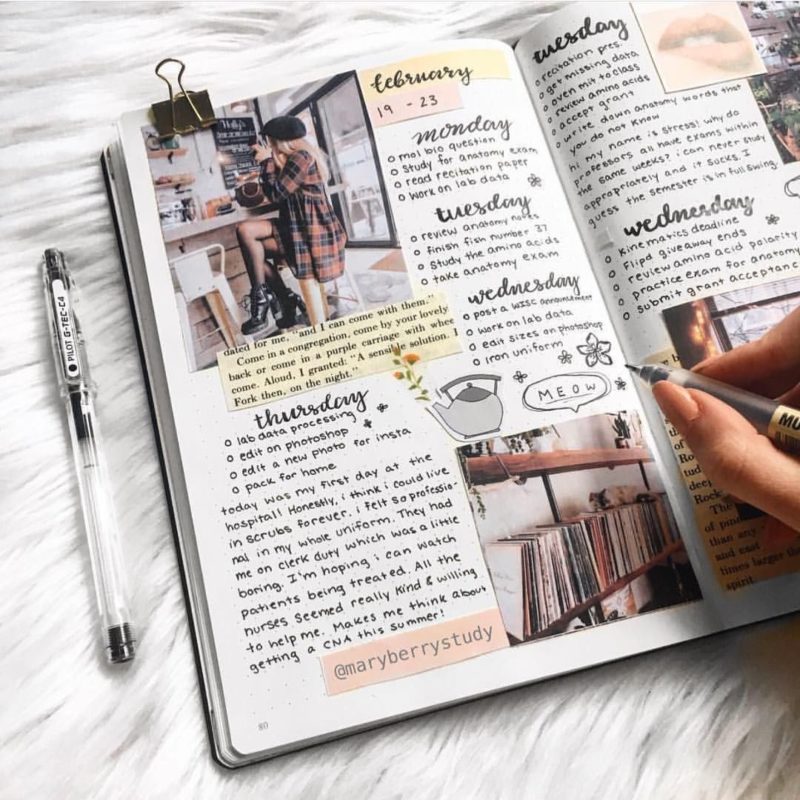 february
19 - 23
monday
o mol bio question
o study for anatomy exam
o read recitation paper
o work on lab data
tuesday
o review anatomy notes
o finish fish number 37
o study the amino acids
o take anatomy exam
wednesday
o post a WISC announcement
o work on lab data
o edit sizes on photoshop
o iron uniform
MEOW
dated for me. "and I can come with them."
Come in a congregation, come by your lovely
back or come in a purple carriage with whee
come. Aloud, I granted: "A sensible solution. I
Fork then, on the night."
thursday
o lab data processing
o edit on photoshop
o edit a new photo for insta
o pack for home
today was my first day at the
hospital! Honestly, i think i could live
in scrubs forever. i felt so professio-
nal in my whole uniform. They had
me on clerk duty which was a little
boring. I'm hoping i can watch
patients being treated. All the
nurses seemed really kind & willing
to help me. Makes me think about
getting a CNA this summer!
@maryberrystudy
80
PILOT G-TEC-C4
tuesday
o recitation pres.
o get missing data
o oven mit to class
o review amino acids
o accept grant
o write down anatomy words that
you do not know
hi my name is stress! why do
professors all have exams within
the same weeks? i can never study
appropriately and it sucks. I
guess the semester is in full swing.
wednesday
o kinematics deadline
o Flipd giveaway ends
o review amino acid polarity
o practice exam for anatomy
o submit grant acceptance
of
Rock
The
than any
and east
times larger
spirit.
MU